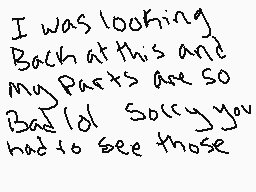 I was looking
Back at this and
my parts are so
Bad lol Sorry you
had to see those